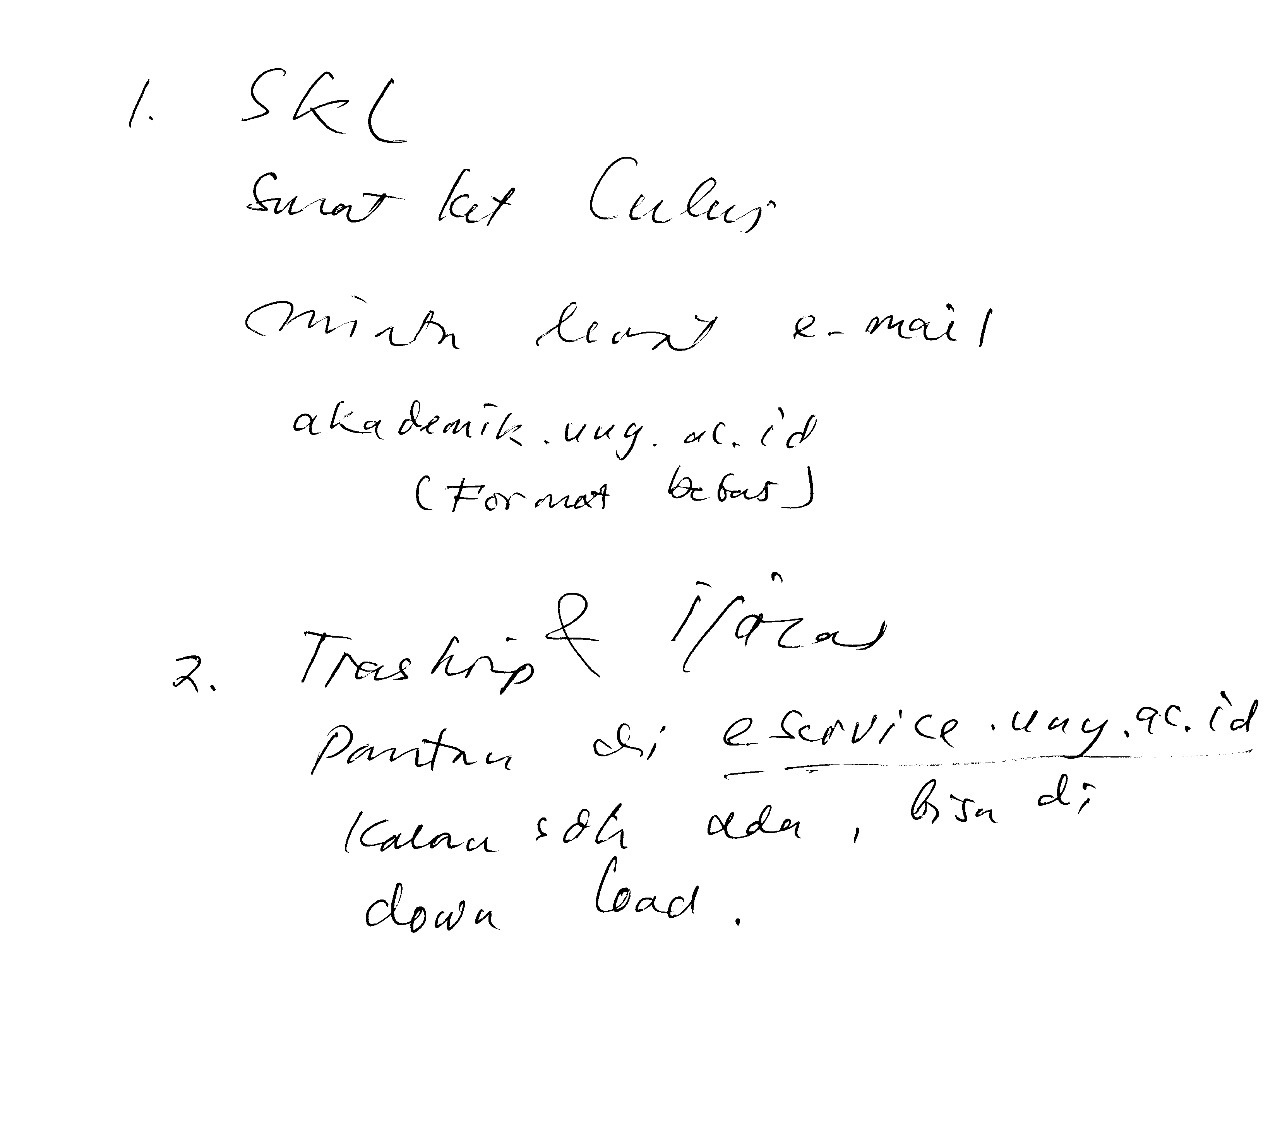 1. SKL
Surat ket Lulus
minta lewat e-mail
akademik.uny.ac.id
(Format bebas)
2. Traskrip & ijazah
Pantau di eservice.uny.ac.id
Kalau sdh ada, bisa di
down load.